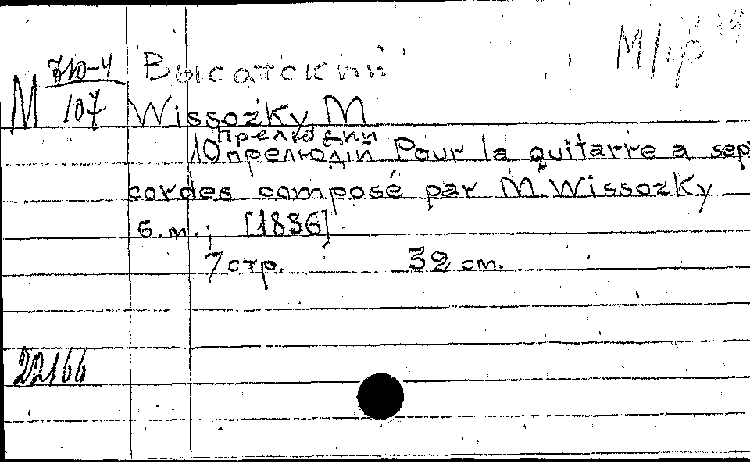 710-4
М 107
Высотский
М/гр
Wissozky M
прелюдии
10 прелюдій Pour la quitarre a sep
cordes composé par M. Wissozky
б.м., [1836]
7 стр. 32 см.
22166